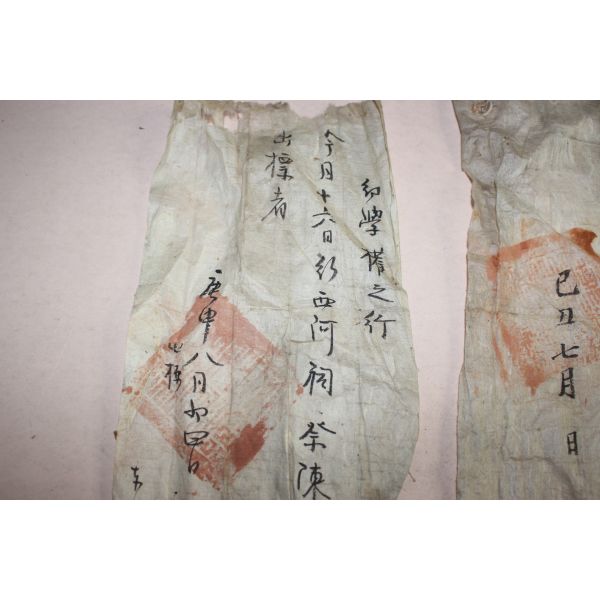 幼學 權之行
今月十六日行西河祠祭陳
出標者
庚申八月初四日
出標
己丑七月 日